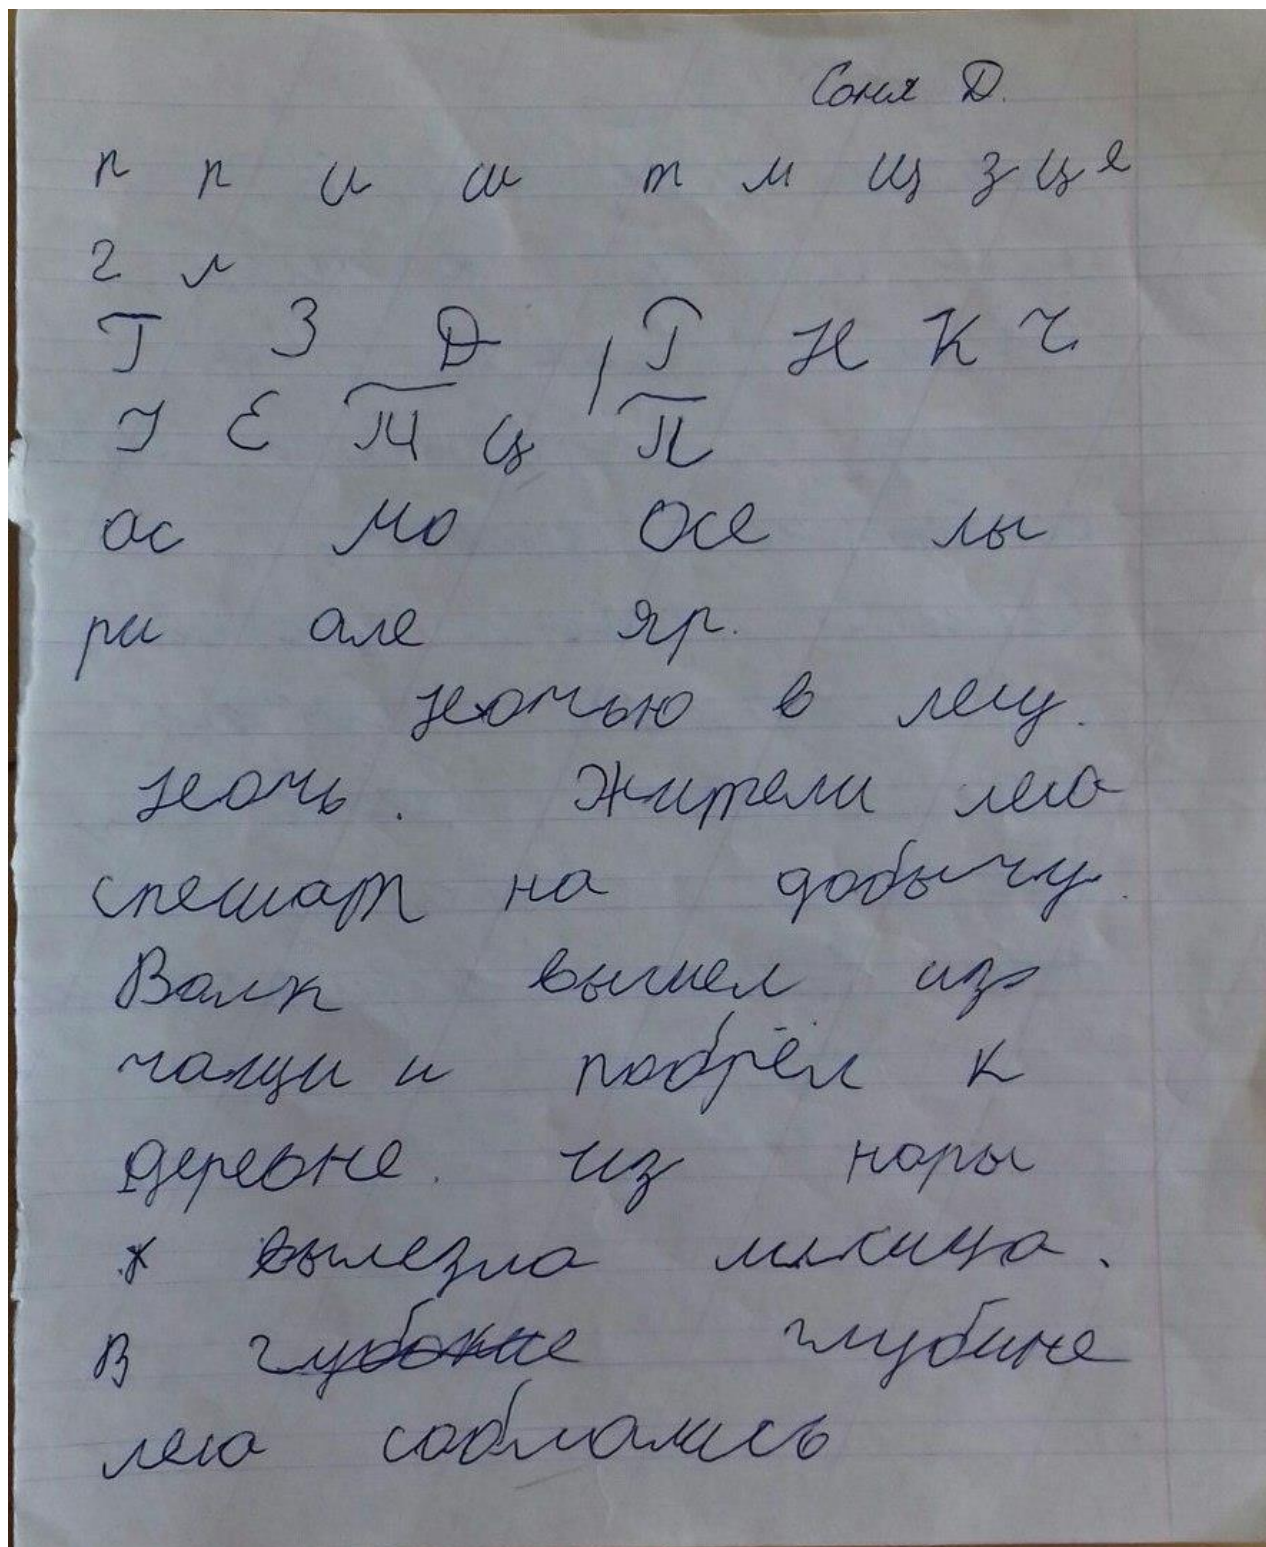 Соня Д.
п п и ш т м щ з ц е
г л
Т З Д Г Н К Ч
У Е Т Ц П
ас мо осе лы
ри але яр.
Ночью в лесу.
Ночь. Жители леса
спешат на добычу.
Волк вышел из
чащи и побрёл к
деревне. Из норы
вылезла лисица.
В глубокие глубине
леса собрались